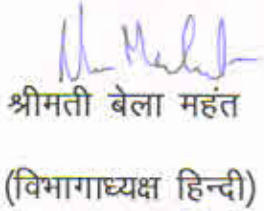 श्रीमती बेला महंत
(विभागाध्यक्ष हिन्दी)